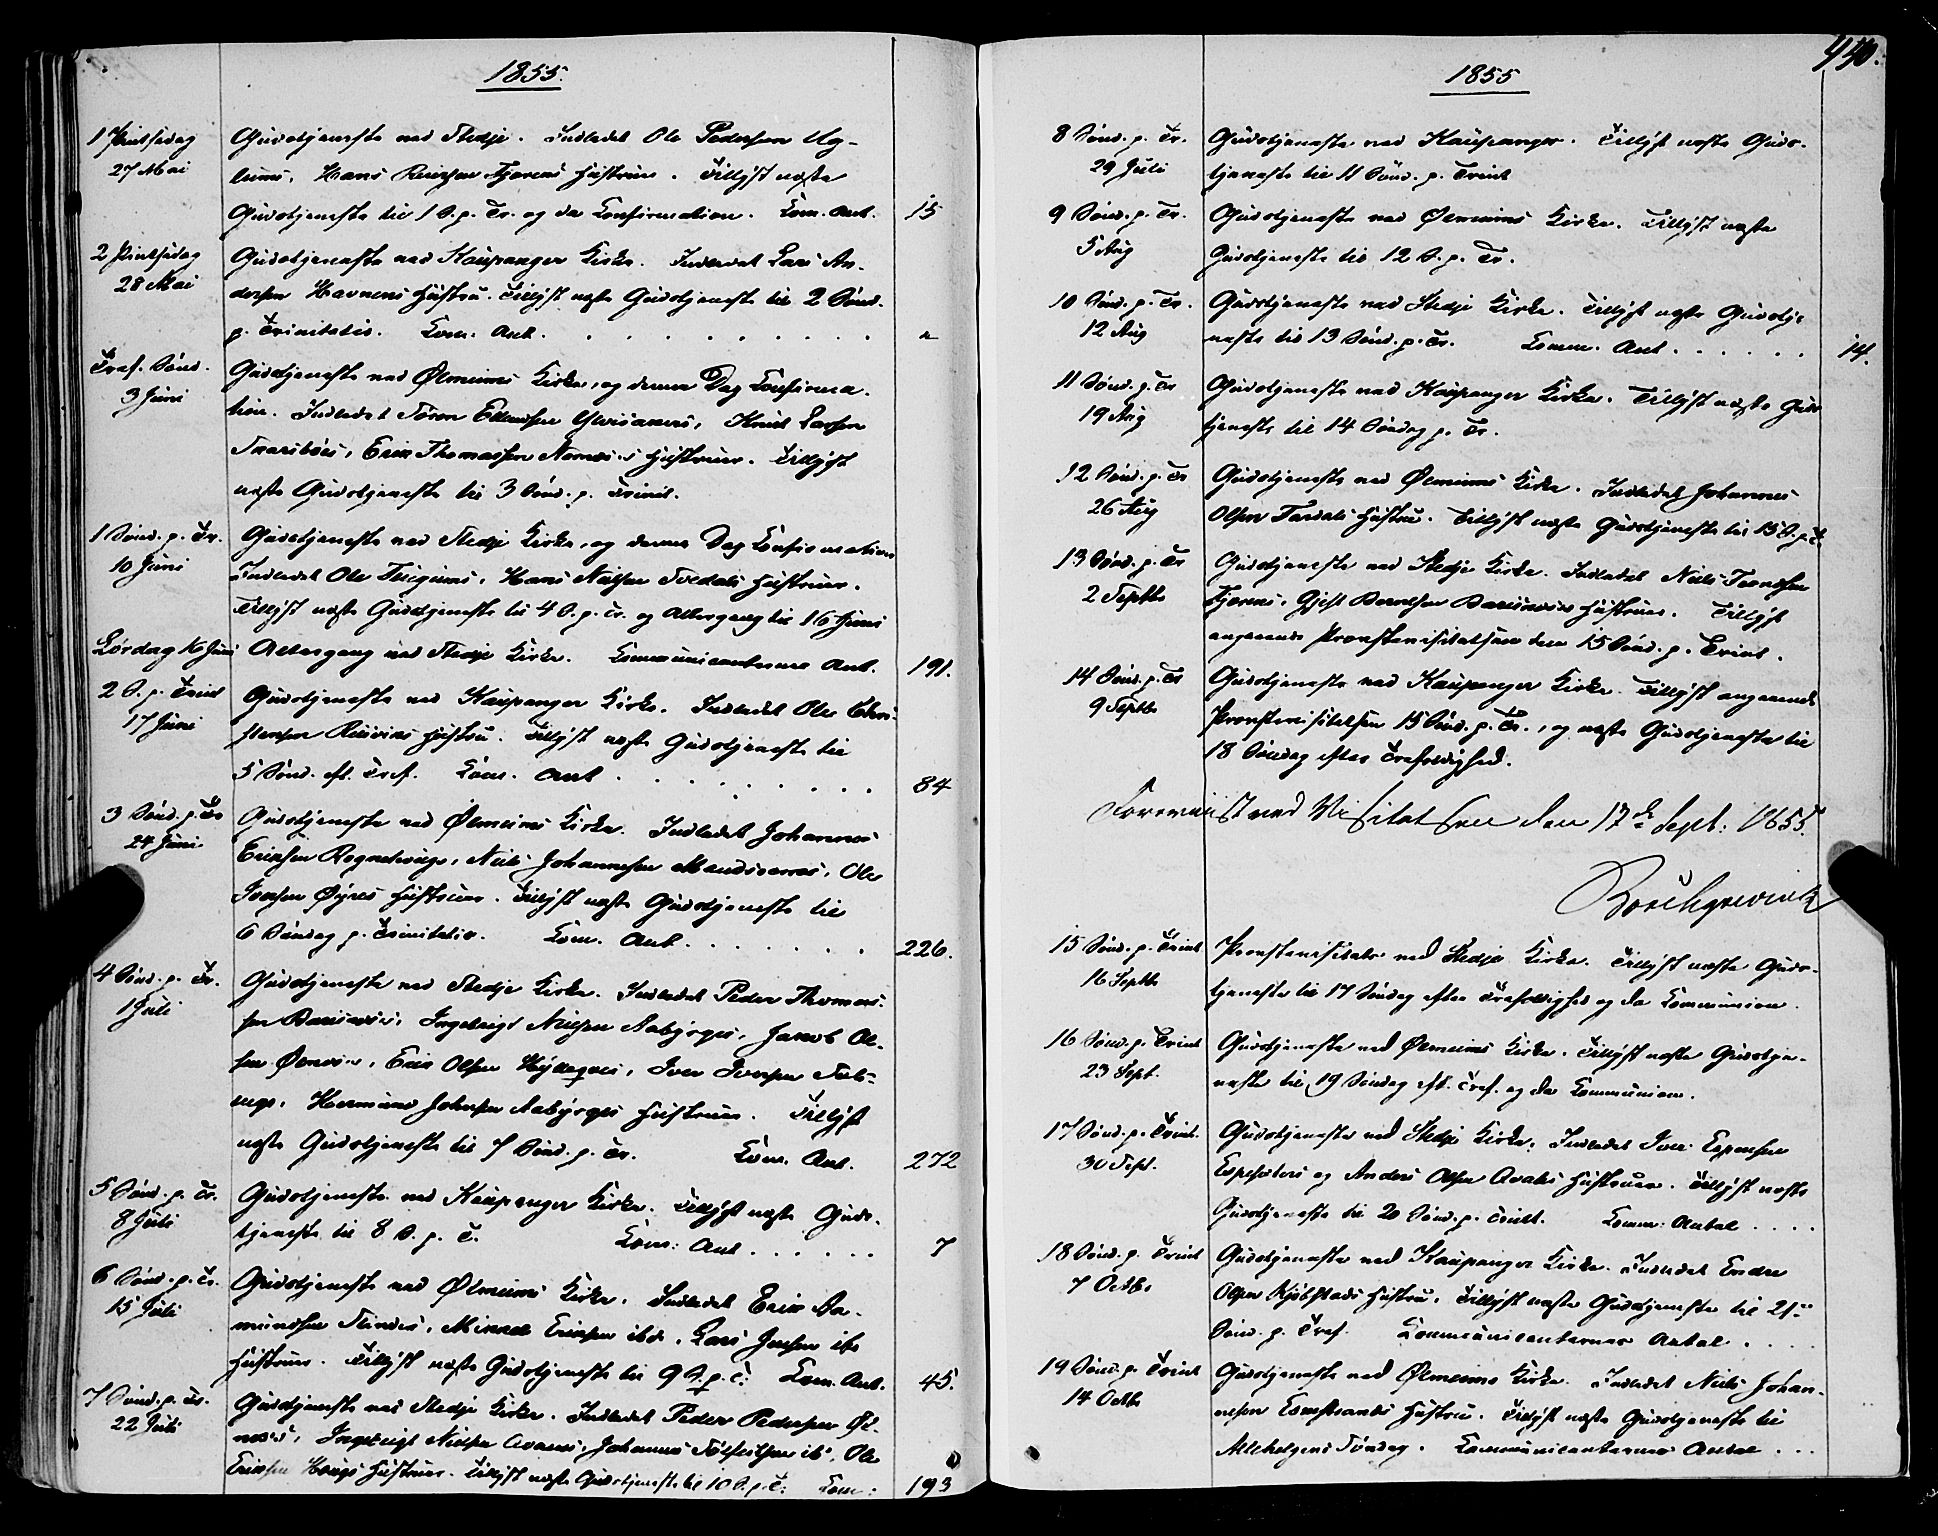 1855.
1 Pintsedag Gudstjeneste ved Stedje. Indledet Ole Pedersen Ug-
27 Mai lums, Hans Fjærens Hustruer. Tillyst næste
Gudstjeneste til 1 S. p. Tr. og da Confirmation. Com. Ant. 15
2 Pintsedag Gudstjeneste ved Kaupanger Kirke. Indledet Lars An-
28 Mai dersen Havnens Hustru. Tillyst næste Gudstjeneste til 2 Sönd.
p. Trinitatis. Com. Ant. . . . . . . . . . "
Tref. Sönd. Gudstjeneste ved Ølmeims Kirke, og denne Dag Confirma-
3 Juni tion. Indledet Knud Larsen
Erik Thomassen Hustruer. Tillyst
næste Gudstjeneste til 3 Sönd. p. Trinit.
1 Sönd. p. Tr. Gudstjeneste ved Stedje Kirke, og denne Dag Confirmation
10 Juni Indledet Ole Hans Nielsen Hustruer.
Tillyst næste Gudstjeneste til 4 S. p. Tr. og Altergang til 16 Juni
Lørdag 16 Juni Altergang ved Stedje Kirke. Communicanternes Ant. 191.
2 S. p. Trinit Gudstjeneste ved Kaupanger Kirke. Indledet Ole Chri-
17 Juni stensen Hustru. Tillyst næste Gudstjeneste til
5 Sönd. eft. Tref. Com. Ant . . . . . . . 84
3 Sönd. p. Tr Gudstjeneste ved Ølmeims Kirke. Indledet Johannes
24 Juni Eriksen Niels Johannesen Ole
Iversen Øyres Hustruer. Tillyst næste Gudstjeneste til
6 Söndag p. Trinitatis. Com. Ant. . . . . . . 226.
4 Sönd. p. Tr. Gudstjeneste ved Stedje Kirke. Indledet Peder Thomas-
1 Juli sen Ingebrigt Nielsen Nabjørges, Jacob Ol-
sen Erik Olsen Iver Iversen
Hermund Johnsen Nabjørges Hustruer. Tillyst
næste Gudstjeneste til 7 Sönd. p. Tr. Com. Ant. 272
5 Sönd. p. Tr. Gudstjeneste ved Kaupanger Kirke. Tillyst næste Guds-
8 Juli tjeneste til 8 S. p. T. Com: Ant . . . . . . 7
6 Sönd. p. Tr. Gudstjeneste ved Ølmeims Kirke. Indledet Erik Aa-
15 Juli mundsen Eriksen ibd, Lars Jensen ib
Hustruer. Tillyst næste Gudstjeneste til 9 S. p. T. Com. Ant. 45.
7 Sönd. p. Tr. Gudstjeneste ved Stedje Kirke. Indledet Peder Pedersen Øl-
22 Juli næs's, Ingebrigt Nielsen Johannes ib, Ole
Eriksen Haugs Hustruer. Tillyst næste Gudstjeneste til 10 S. p. T. Com: 193
1855
440.
8 Sönd. p. Tr. Gudstjeneste ved Kaupanger. Tillyst næste Guds-
29 Juli tjeneste til 11 Sönd. p. Trinit
9 Sönd. p. Tr. Gudstjeneste ved Ølmeims Kirke. Tillyst næste
5 Aug Gudstjeneste til 12 S. p. Tr.
10 Sönd. p. Tr. Gudstjeneste ved Stedje Kirke. Tillyst næste Gudstje-
12 Aug neste til 13 Sönd. p. Tr. Comm. Ant . . . . . . 14.
11 Sönd. p. Tr Gudstjeneste ved Kaupanger Kirke. Tillyst næste Guds
19 Aug tjeneste til 14 Söndag p. Tr.
12 Sönd. p. Tr Gudstjeneste ved Ølmeims Kirke. Indledet Johannes
26 Aug Olsen Hustru. Tillyst næste Gudstjeneste til 15 S. p. T.
13 Sönd. p. Tr Gudstjeneste ved Stedje Kirke. Indledet Niels
2 Septb Fjærens, Gjest Berntsen Hustruer. Tillyst
angaaende Provstevisitatsen den 15 Sönd. p. Trinit.
14 Sönd. p. Tr Gudstjeneste ved Kaupanger Kirke. Tillyst angaaende
9 Septb Provstevisitatsen 15 Sönd. p. Tr., og næste Gudstjeneste til
18 Söndag efter Trefoldighed.
Foreviist ved Visitatsen den 17de Sept: 1855.
Borchgrevink
15 Sönd. p. Trinit Provstevisitats ved Stedje Kirke. Tillyst næste Guds-
16 Septb tjeneste til 17 Söndag efter Trefoldighed og da Communion.
16 Sönd. p. Trinit Gudstjeneste ved Ølmeims Kirke. Tillyst næste Gudstje-
23 Sept. neste til 19 Söndag eft. Tref. og da Communion.
17 Sönd. p. Trinit. Gudstjeneste ved Stedje Kirke. Indledet Iver Espensen
30 Sept. og Anders Olsen Hustruer. Tillyst næste
Gudstjeneste til 20 Sönd. p. Trinit. Comm: Antal . . . .
18 Sönd. p. Trinit Gudstjeneste ved Kaupanger Kirke. Indledet Endre
7 Octb. Olsen Hustru. Tillyst næste Gudstjeneste til 21de
Sönd. p. Tref. Communicanternes Antal . . . .
19 Sönd. p. Trinit Gudstjeneste ved Ølmeims Kirke. Indledet Niels Johan-
14 Octb nesen Hustru. Tillyst næste Gudstjeneste til
Allehelgens Söndag. Communicanternes Antal . . .